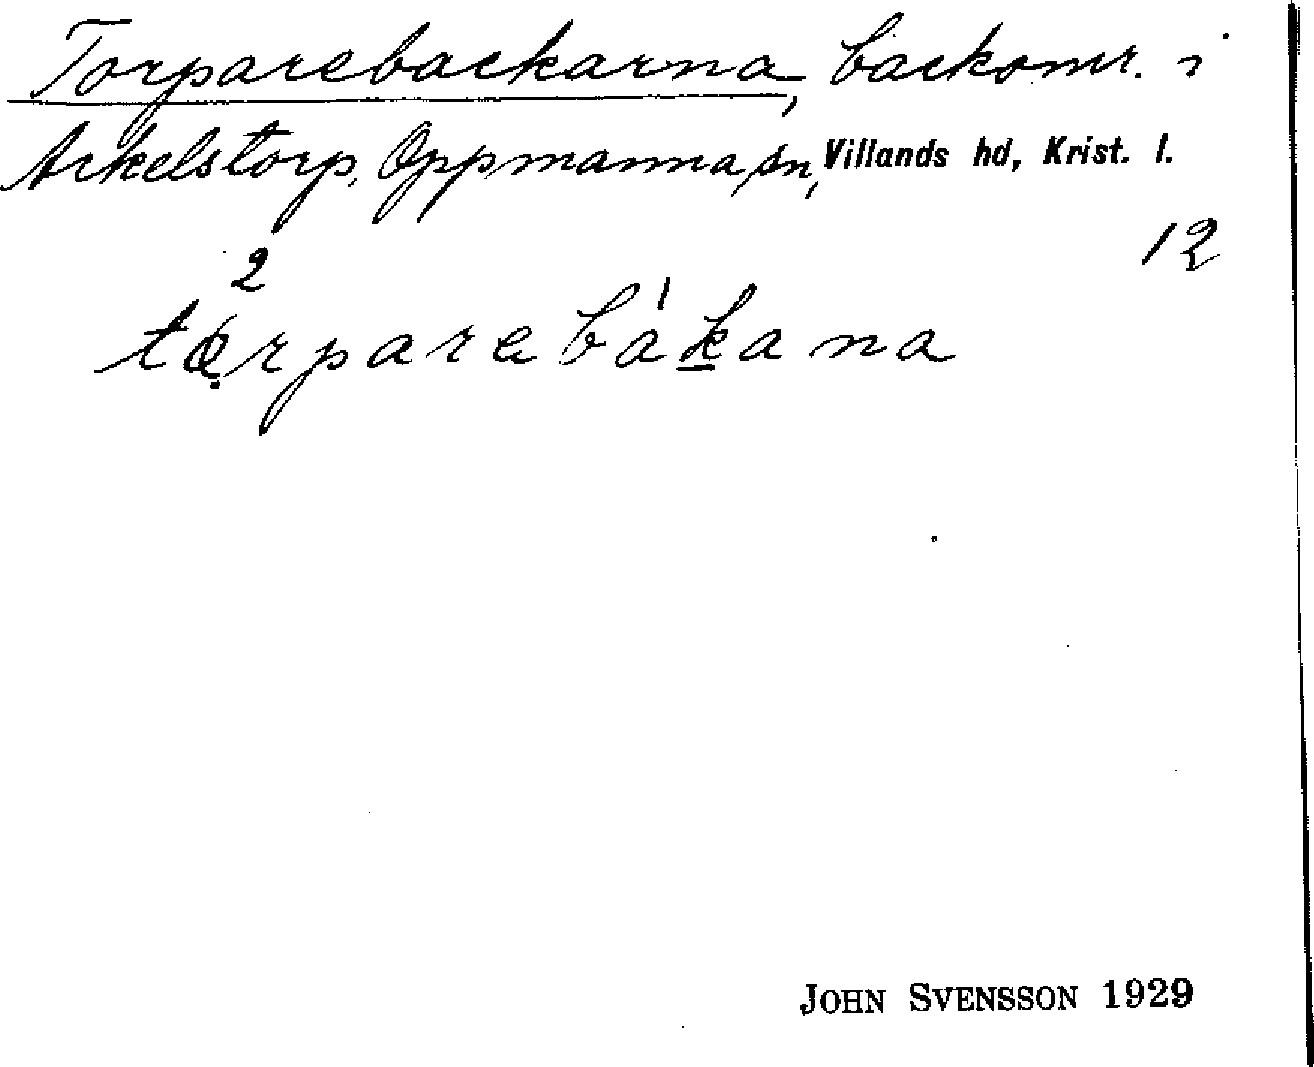 Torparebackarna, backomr. i
Arkelstorp, Oppmanna sn, Villands hd, Krist. l.
12
2 1
torparebakana
JOHN SVENSSON 1929